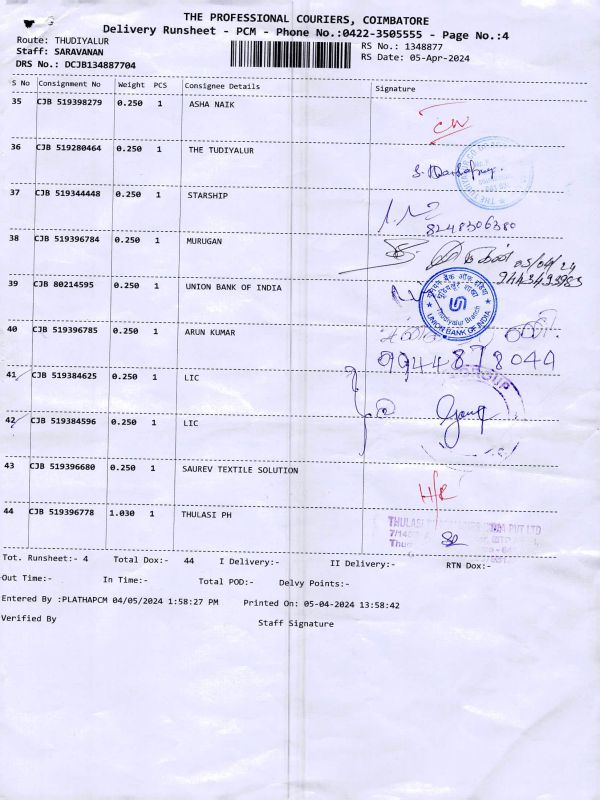 THE PROFESSIONAL COURIERS, COIMBATORE
Delivery Runsheet - PCM - Phone No.:0422-3505555 - Page No.:4
Route: THUDIYALUR
RS No.: 1348877
Staff: SARAVANAN
RS Date: 05-Apr-2024
DRS No.: DCJB134887704
S No Consignment No Weight PCS Consignee Details Signature
35 CJB 519398279 0.250 1 ASHA NAIK
36 CJB 519280464 0.250 1 THE TUDIYALUR
37 CJB 519344448 0.250 1 STARSHIP
8248306380
38 CJB 519396784 0.250 1 MURUGAN
05/04/24
9443493983
39 CJB 80214595 0.250 1 UNION BANK OF INDIA
Thudiyalur Branch
UNION BANK OF INDIA
40 CJB 519396785 0.250 1 ARUN KUMAR
9944878044
41 CJB 519384625 0.250 1 LIC
42 CJB 519384596 0.250 1 LIC
43 CJB 519396680 0.250 1 SAUREV TEXTILE SOLUTION
44 CJB 519396778 1.030 1 THULASI PH
THULASI PVT LTD
Tot. Runsheet:- 4 Total Dox:- 44 I Delivery:- II Delivery:- RTN Dox:-
Out Time:- In Time:- Total POD:- Delvy Points:-
Entered By :PLATHAPCM 04/05/2024 1:58:27 PM Printed On: 05-04-2024 13:58:42
Verified By Staff Signature